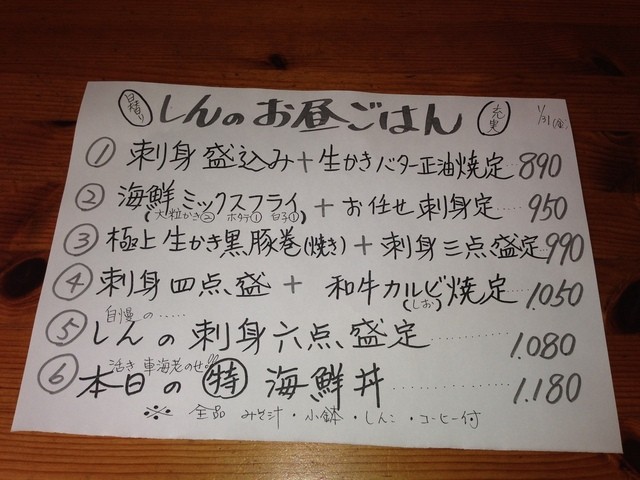 日替り しんのお昼ごはん 充実 1/31(金)
① 刺身盛込み+生かきバター正油焼定…890
② 海鮮ミックスフライ+お任せ刺身定…950
(大粒かき② ホタテ① 白子①)
③ 極上生かき黒豚巻(焼き)+刺身三点盛定…990
④ 刺身四点盛+和牛カルビ焼定…1.050
(しお)
自慢の……
⑤ しんの刺身六点盛定……1.080
活き車海老のせ!!
⑥ 本日の㊕海鮮丼……1.180
※ 全品 みそ汁・小鉢・しんこ・コーヒー付